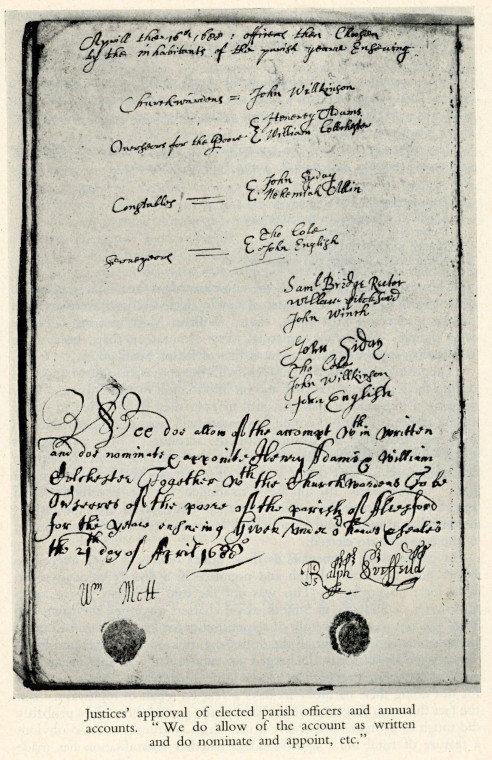 Aprill ther 16th 1688: officers then Chosen
by the inhabitants of the parish yeare Ensewing
Churchwardens = John Willkinson
Overseers for the Poore { Henerey Adams
William Collchester
Constables = { John Syday
Nehemiah Allin
Surveyors = { Tho Cole
John English
Saml Bridge Rector
William
John Winch
John Siday
Tho Cole
John Willkinson
John English
Wee doe allow of the accompt wth in written
and doe nominate & appointe Henry Adams & William
Colchester Together wth the Churchwardens To be
Overseeres of the poore of the parish of Alresford
for the yeare ensueing Given under or hands & seales
the 21th day of Aprill 1688
Wm Mott
Ralph
Justices' approval of elected parish officers and annual
accounts. “ We do allow of the account as written
and do nominate and appoint, etc.”